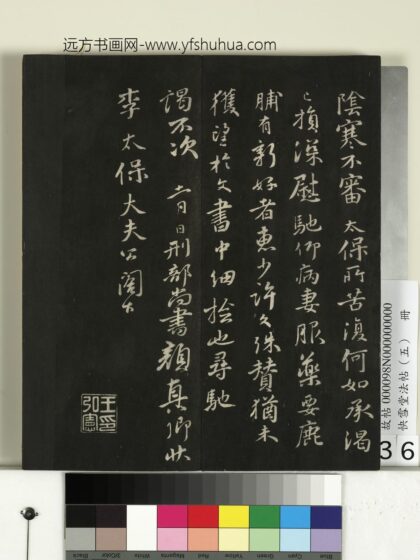 远方书画网-www.yfshuhua.com
陰寒不審 太保所苦復何如承渴
已損深慰馳仰病妻服藥要鹿
脯有新好者惠少許幸殊賛猶未
獲望於文書中細撿也尋馳
謁不次 十一月日刑部尚書顏真卿狀
李太保大夫公閤下
故帖000098N000000000
快雪堂法帖（五） 冊
36
Black
3/Color
White
Magenta
Red
Yellow
Green
Cyan
Blue